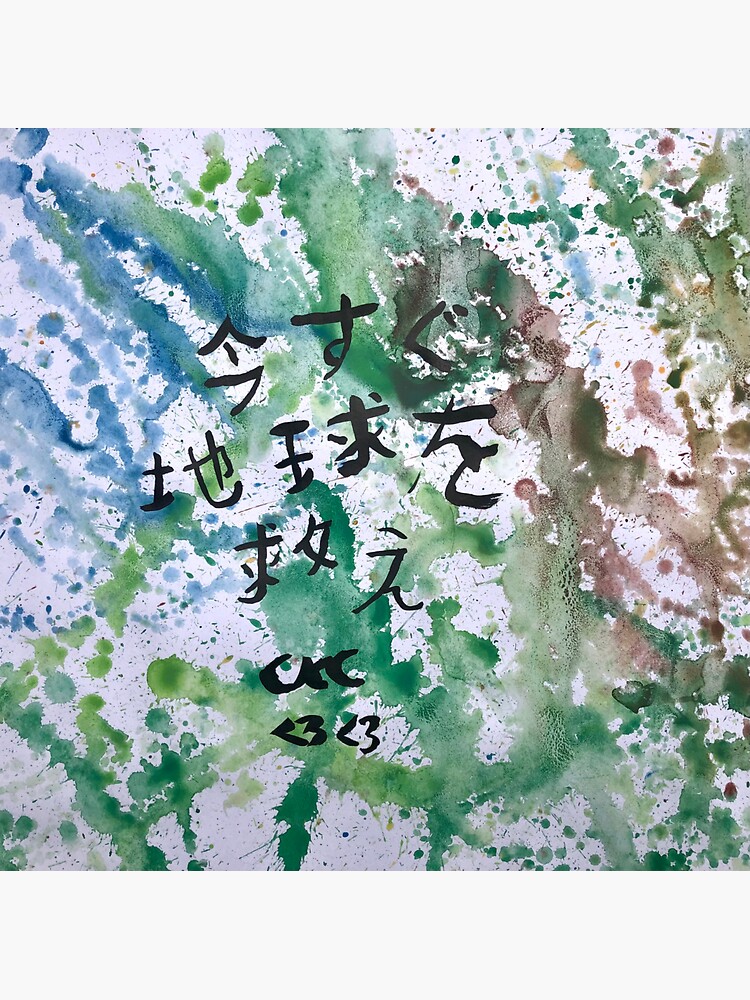 今すぐ
地球を
救え
<3<3